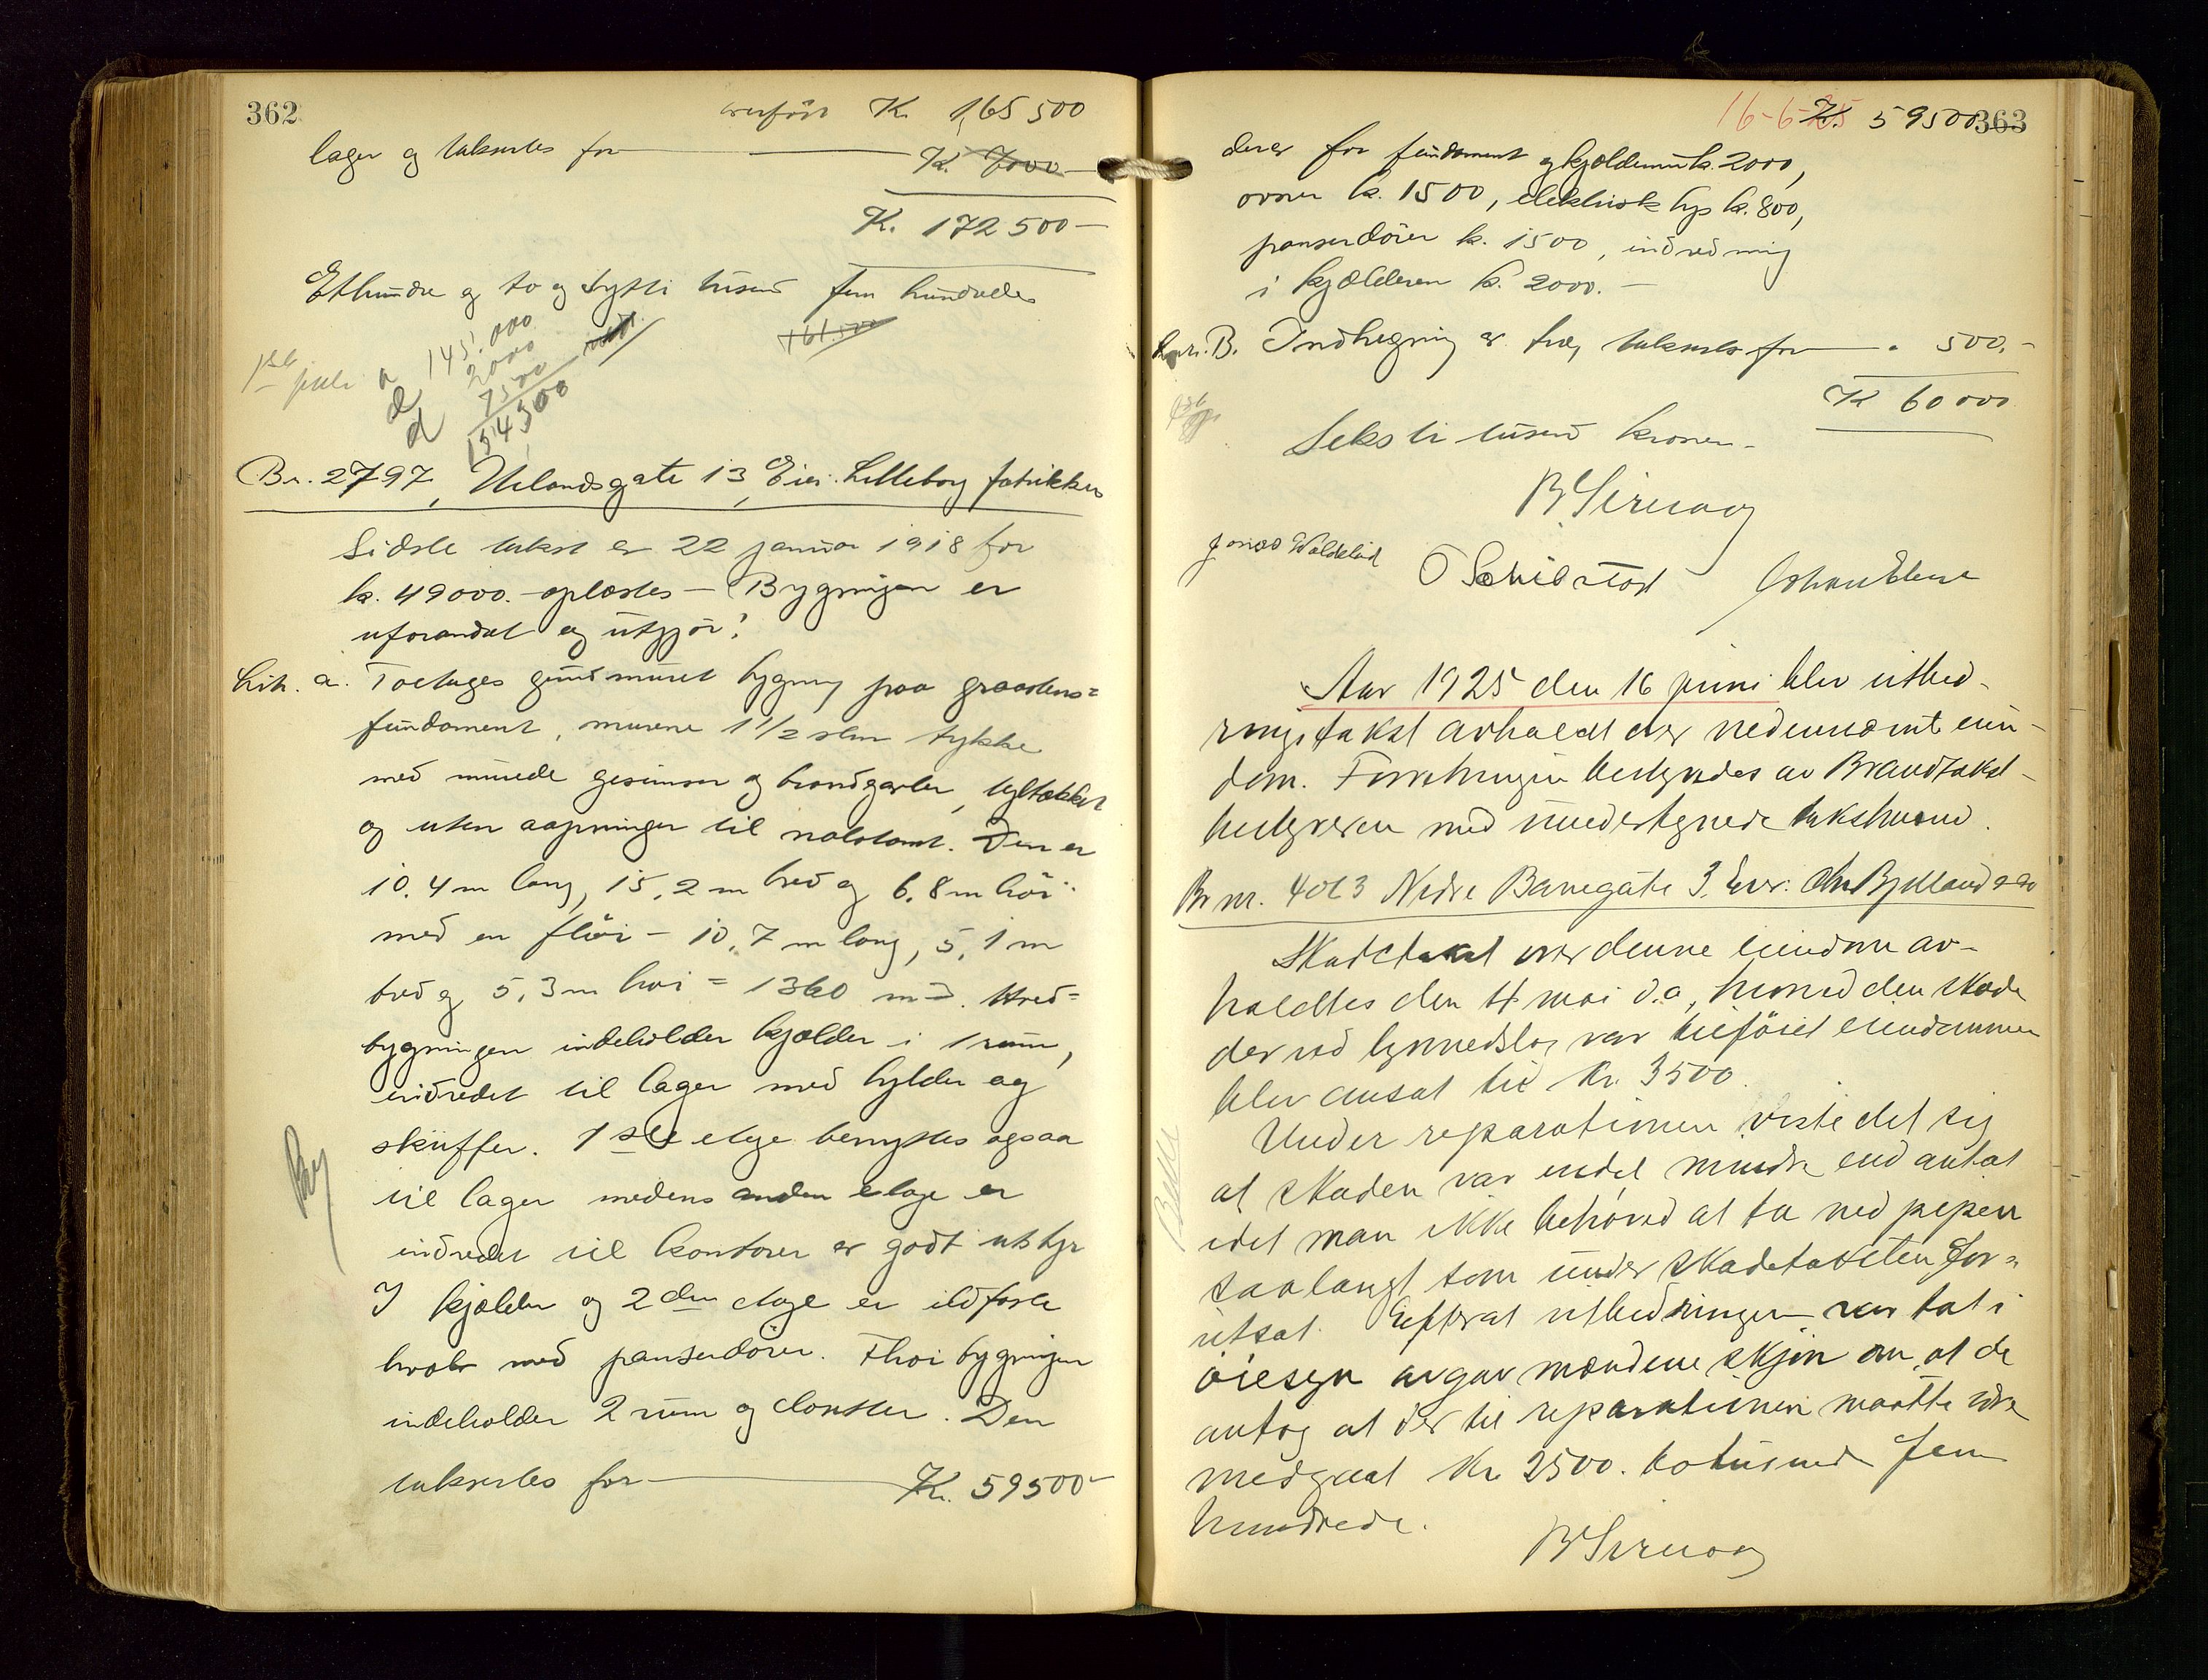 362
overført K. 165 500
lager og takseres for K. 7000 –
K. 172 500 –
Ethundre og to og sytti tusen fem hundrede
161.500
145.000
2000
7500
154300
Br. 2797, Uelandsgate 13, Eier: Lilleborg fabrikker
Sidste takst er 22 januar 1918 for
k. 49000.- oplæstes – Bygningen er
uforandret og utgjør:
Litr. a. Toetages grundmuret bygning paa graastens=
fundament, murene 1 1/2 sten tykke
med murede gesimser og brandgavler, tegltækket
og uten aapninger til nabotomt. Den er
10.4 m lang, 15,2 m bred og 6.8 m høi
med en fløi – 10,7 m lang, 5,1 m
bred og 5,3 m høi = 1360 m3. Hoved=
bygningen indeholder kjælder i 1 rum,
indredet til lager med hylder og
skuffer. 1ste etage benyttes ogsaa
til lager medens anden etage er
indredet til kontorer av godt utstyr
I kjælder og 2den etage er ildfaste
hvælv med panserdører. Fløibygningen
indeholder 2 rum og klosetter. Den
takseres for K. 59500 –
363
16-6-25 K. 59500
derav for fundament og kjældermur k. 2000,
ovner k. 1500, elektrisk lys k. 800,
panserdører k. 1500, indredning
i kjælderen k. 2000. –
Litr. B. Indhegning av træ, takseres for " 500.-
K 60000
Seksti tusen kroner –
B Sirevaag
O Schibstad
Aar 1925 den 16 juni blev utbed-
ringstakst avholdt over nedennævnte eien-
dom. Forretningen bestyredes av Brandtakst-
bestyreren med undertegnede takstmænd.
Br nr. 4013 Nedre Banegate 3. Eier: Chr Bjelland & Co
Skadetakst over denne eiendom av-
holdtes den 4 mai d.a, hvorved den skade
der ved lynnedslag var tilføiet eiendommen
blev ansat til Kr. 3500.
Under reparationen viste det sig
at skaden var endel mindre end antat
idet man ikke behøved at ta ned pipen
saalangt som under skadetaksten for-
utsat. Efterat utbedringen var tat i
øiesyn avgav mændene skjøn om at de
antog at der til reparationen maatte være
medgaat Kr 2500. totusend fem
hundrede.
B Sirevaag